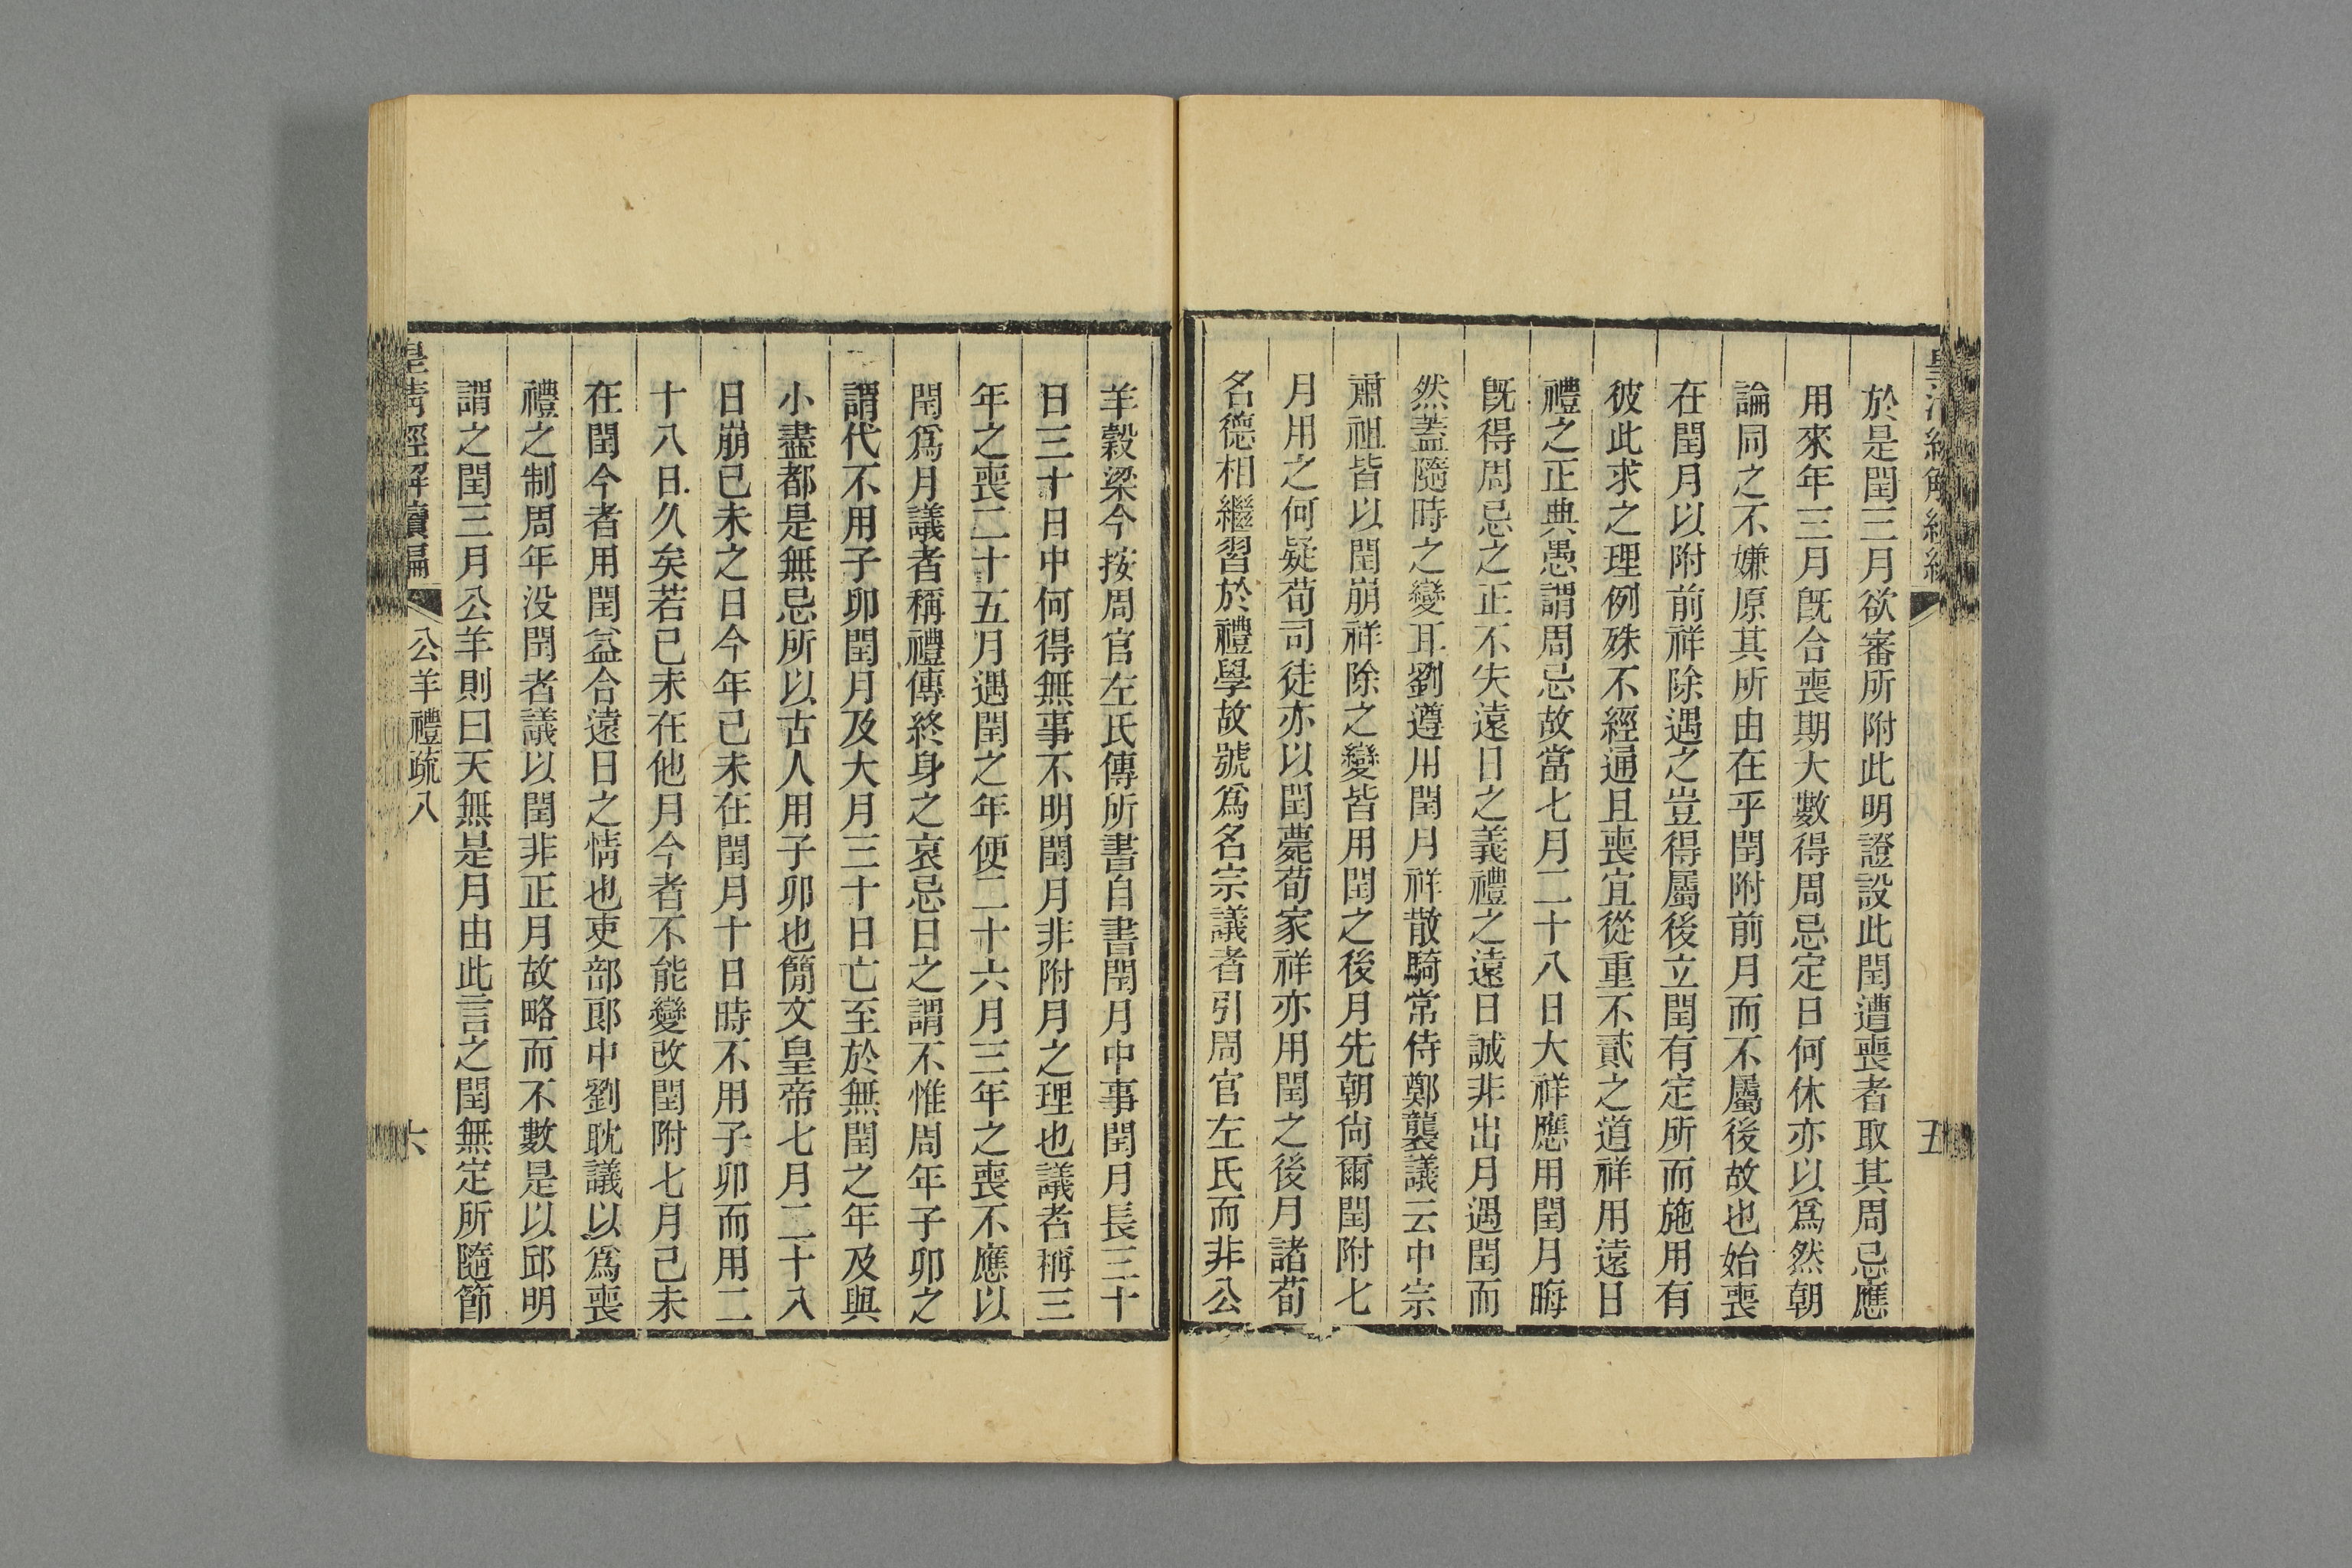 於是閏三月欲審所附此明證設此閏遭喪者取其周忌應
用來年三月旣合喪期大數得周忌定日何休亦以爲然朝
論同之不嫌原其所由在乎閏附前月而不屬後故也始喪
在閏月以附前祥除遇之豈得屬後立閏有定所而施用有
彼此求之理例殊不經通且喪宜從重不貳之道祥用遠日
禮之正典愚謂周忌故當七月二十八日大祥應用閏月晦
旣得周忌之正不失遠日之義禮之遠日誠非出月遇閏而
然蓋隨時之變耳劉遵用閏月祥散騎常侍鄭襲議云中宗
肅祖皆以閏崩祥除之變皆用閏之後月先朝尙爾閏附七
月用之何疑荀司徒亦以閏薨荀家祥亦用閏之後月諸荀
名德相繼習於禮學故號爲名宗議者引周官左氏而非公
五
羊穀梁今按周官左氏傳所書自書閏月中事閏月長三十
日三十日中何得無事不明閏月非附月之理也議者稱三
年之喪二十五月遇閏之年便二十六月三年之喪不應以
閏爲月議者稱禮傳終身之哀忌日之謂不惟周年子卯之
謂代不用子卯閏月及大月三十日亡至於無閏之年及與
小盡都是無忌所以古人用子卯也簡文皇帝七月二十八
日崩已未之日今年已未在閏月十日時不用子卯而用二
十八日久矣若已未在他月今者不能變改閏附七月己未
在閏今者用閏益合遠日之情也吏部郎中劉耽議以爲喪
禮之制周年没閏者議以閏非正月故略而不數是以邱明
謂之閏三月公羊則曰天無是月由此言之閏無定所隨節
皇淸經解續編 公羊禮疏八 六